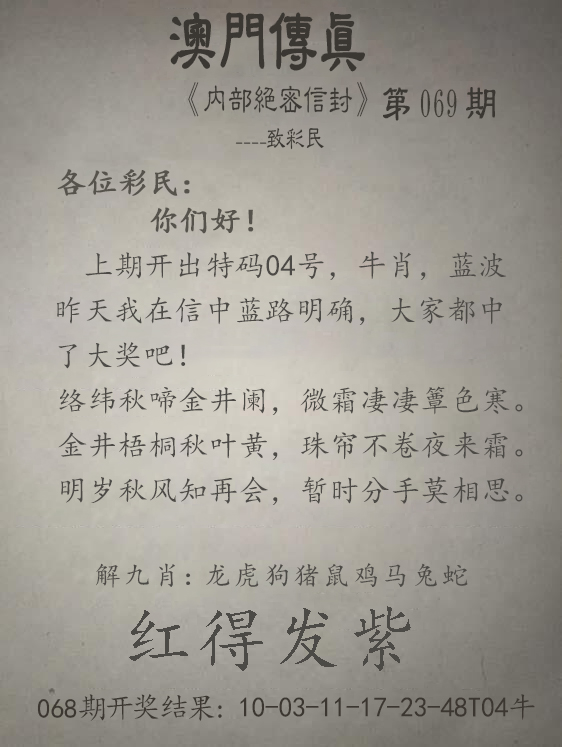 澳門傳眞
《内部絕密信封》第069期
----致彩民
各位彩民：
你们好！
上期开出特码04号，牛肖，蓝波
昨天我在信中蓝路明确，大家都中
了大奖吧！
络纬秋啼金井阑，微霜凄凄簟色寒。
金井梧桐秋叶黄，珠帘不卷夜来霜。
明岁秋风知再会，暂时分手莫相思。
解九肖：龙虎狗猪鼠鸡马兔蛇
红得发紫
068期开奖结果：10-03-11-17-23-48T04牛